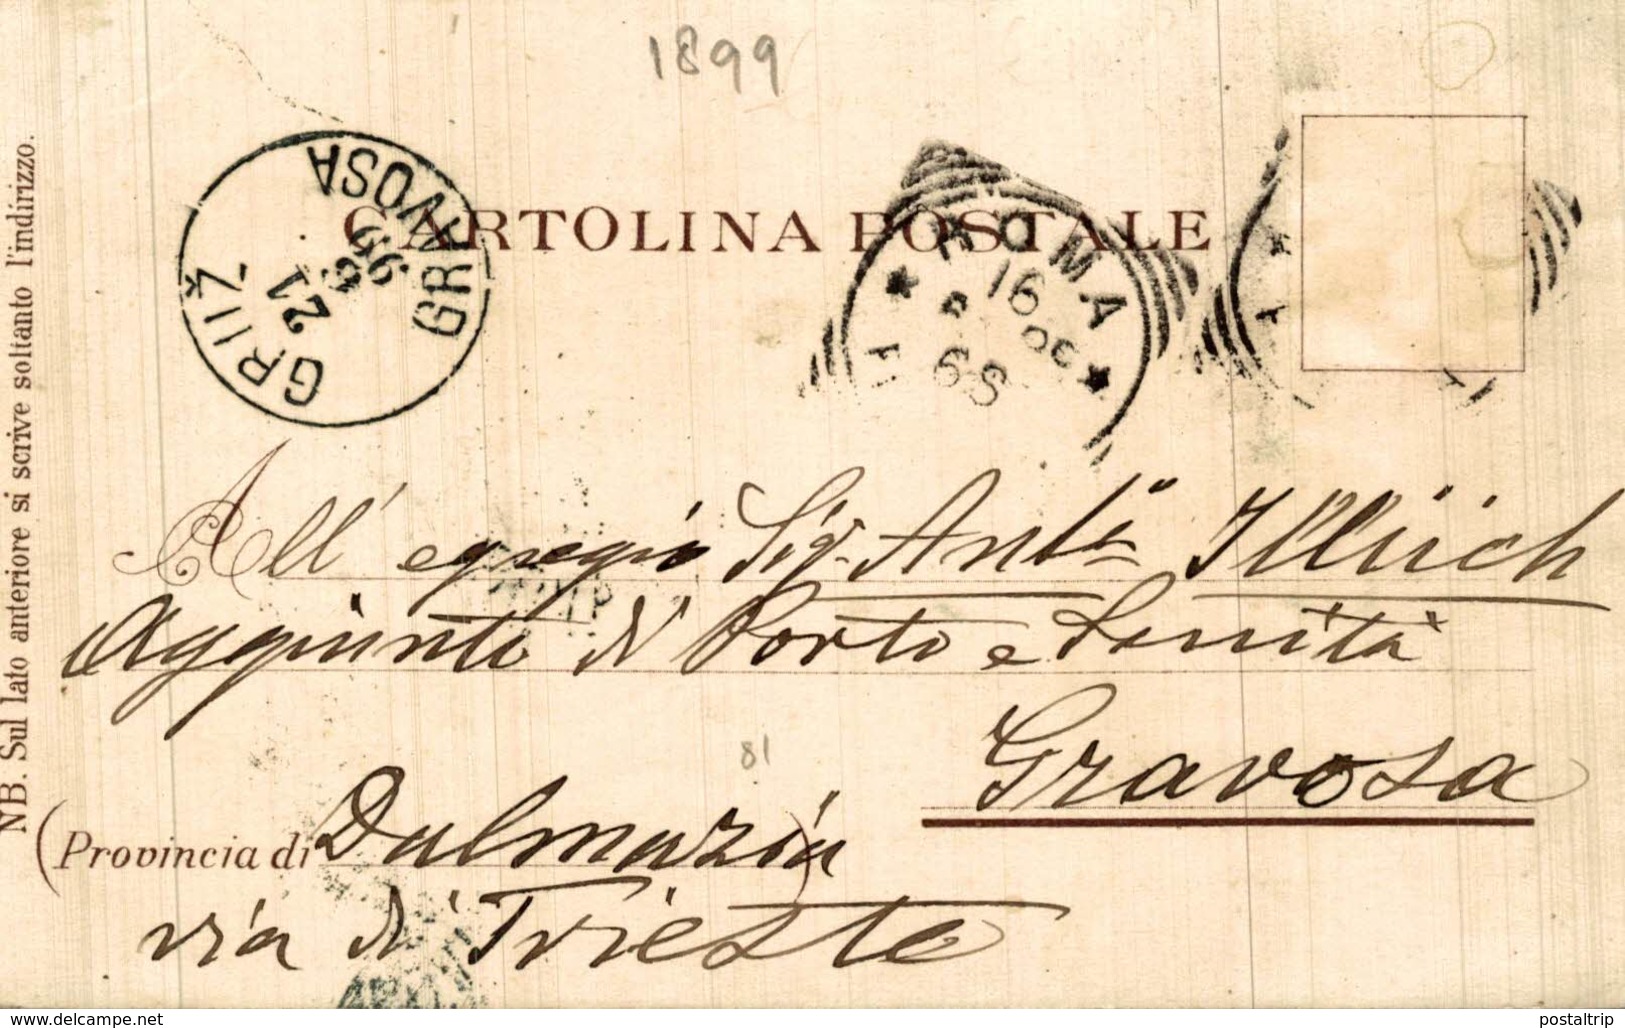 1899
CARTOLINA POSTALE
GRUŽ
GRAVOSA
21
99
ROMA
16
NB. Sul lato anteriore si scrive soltanto l'indirizzo.
All' egregio Sig. Ant. Illiich
Aggiunto di Porto e Sanità
81
Gravosa
(Provincia di Dalmazia)
via di Trieste
www.delcampe.net
postaltrip